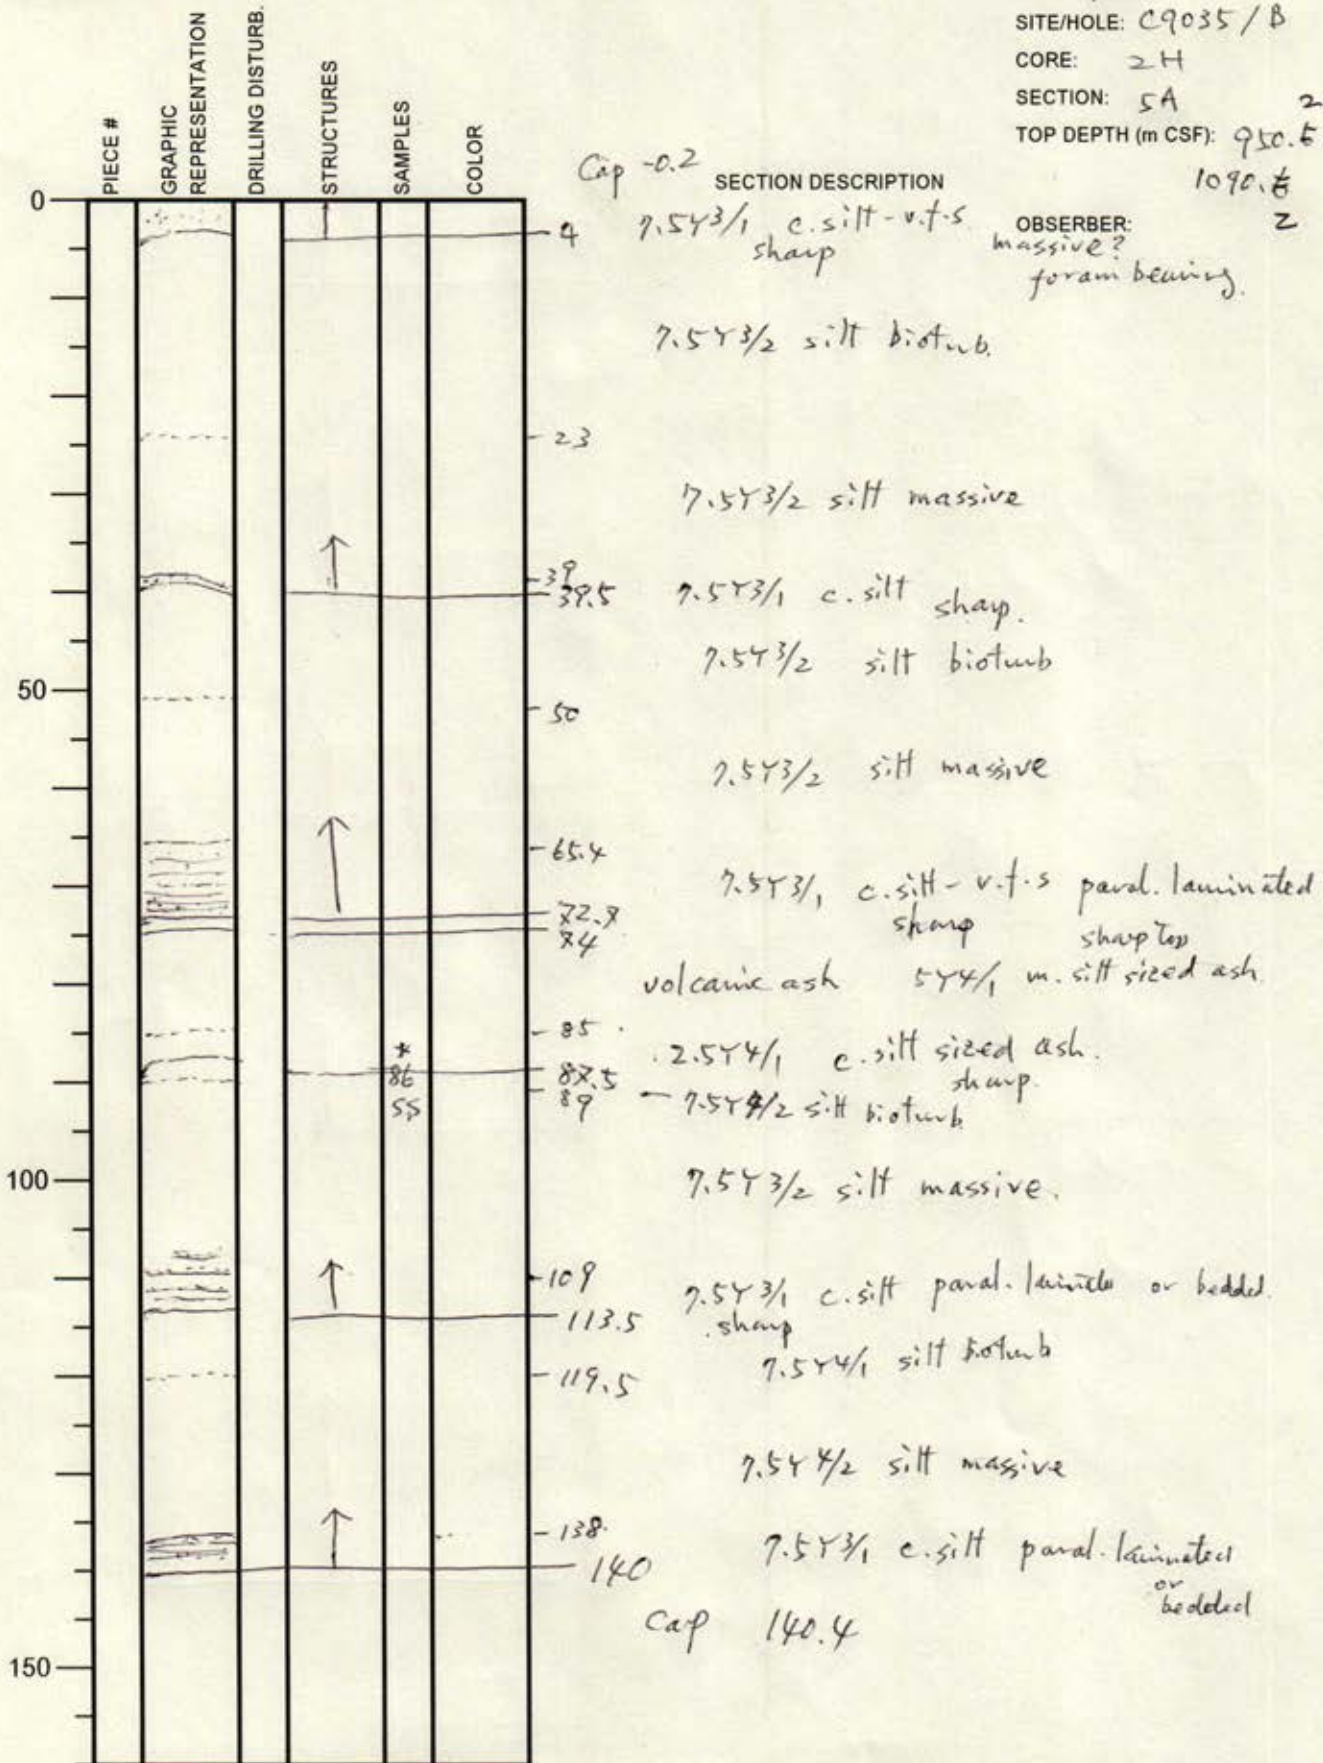 SITE/HOLE: C9035 / B
CORE: 2H
SECTION: 5A 2
TOP DEPTH (m CSF): 950.5
1090.
OBSERBER: 2
PIECE #
GRAPHIC REPRESENTATION
DRILLING DISTURB.
STRUCTURES
SAMPLES
COLOR
Cap -0.2
SECTION DESCRIPTION
0
4 7.5Y3/1 c.silt-v.f.s massive?
sharp foram bearing.
7.5Y3/2 silt bioturb.
23
7.5Y3/2 silt massive
39
39.5 7.5Y3/1 c.silt sharp.
7.5Y3/2 silt bioturb
50
50
7.5Y3/2 silt massive
65.4
7.5Y3/1 c.silt-v.f.s paral. laminated
72.9 sharp sharp top
74
volcanic ash 5Y4/1 m.silt sized ash.
85
* 2.5Y4/1 c.silt sized ash.
86 87.5 sharp.
SS 89 - 7.5Y4/2 silt bioturb
100
7.5Y3/2 silt massive.
109 7.5Y3/1 c.silt paral. laminate or bedded.
113.5 sharp
7.5Y4/1 silt bioturb
119.5
7.5Y4/2 silt massive
138. 7.5Y3/1 c.silt paral. laminated
140 or bedded
Cap 140.4
150